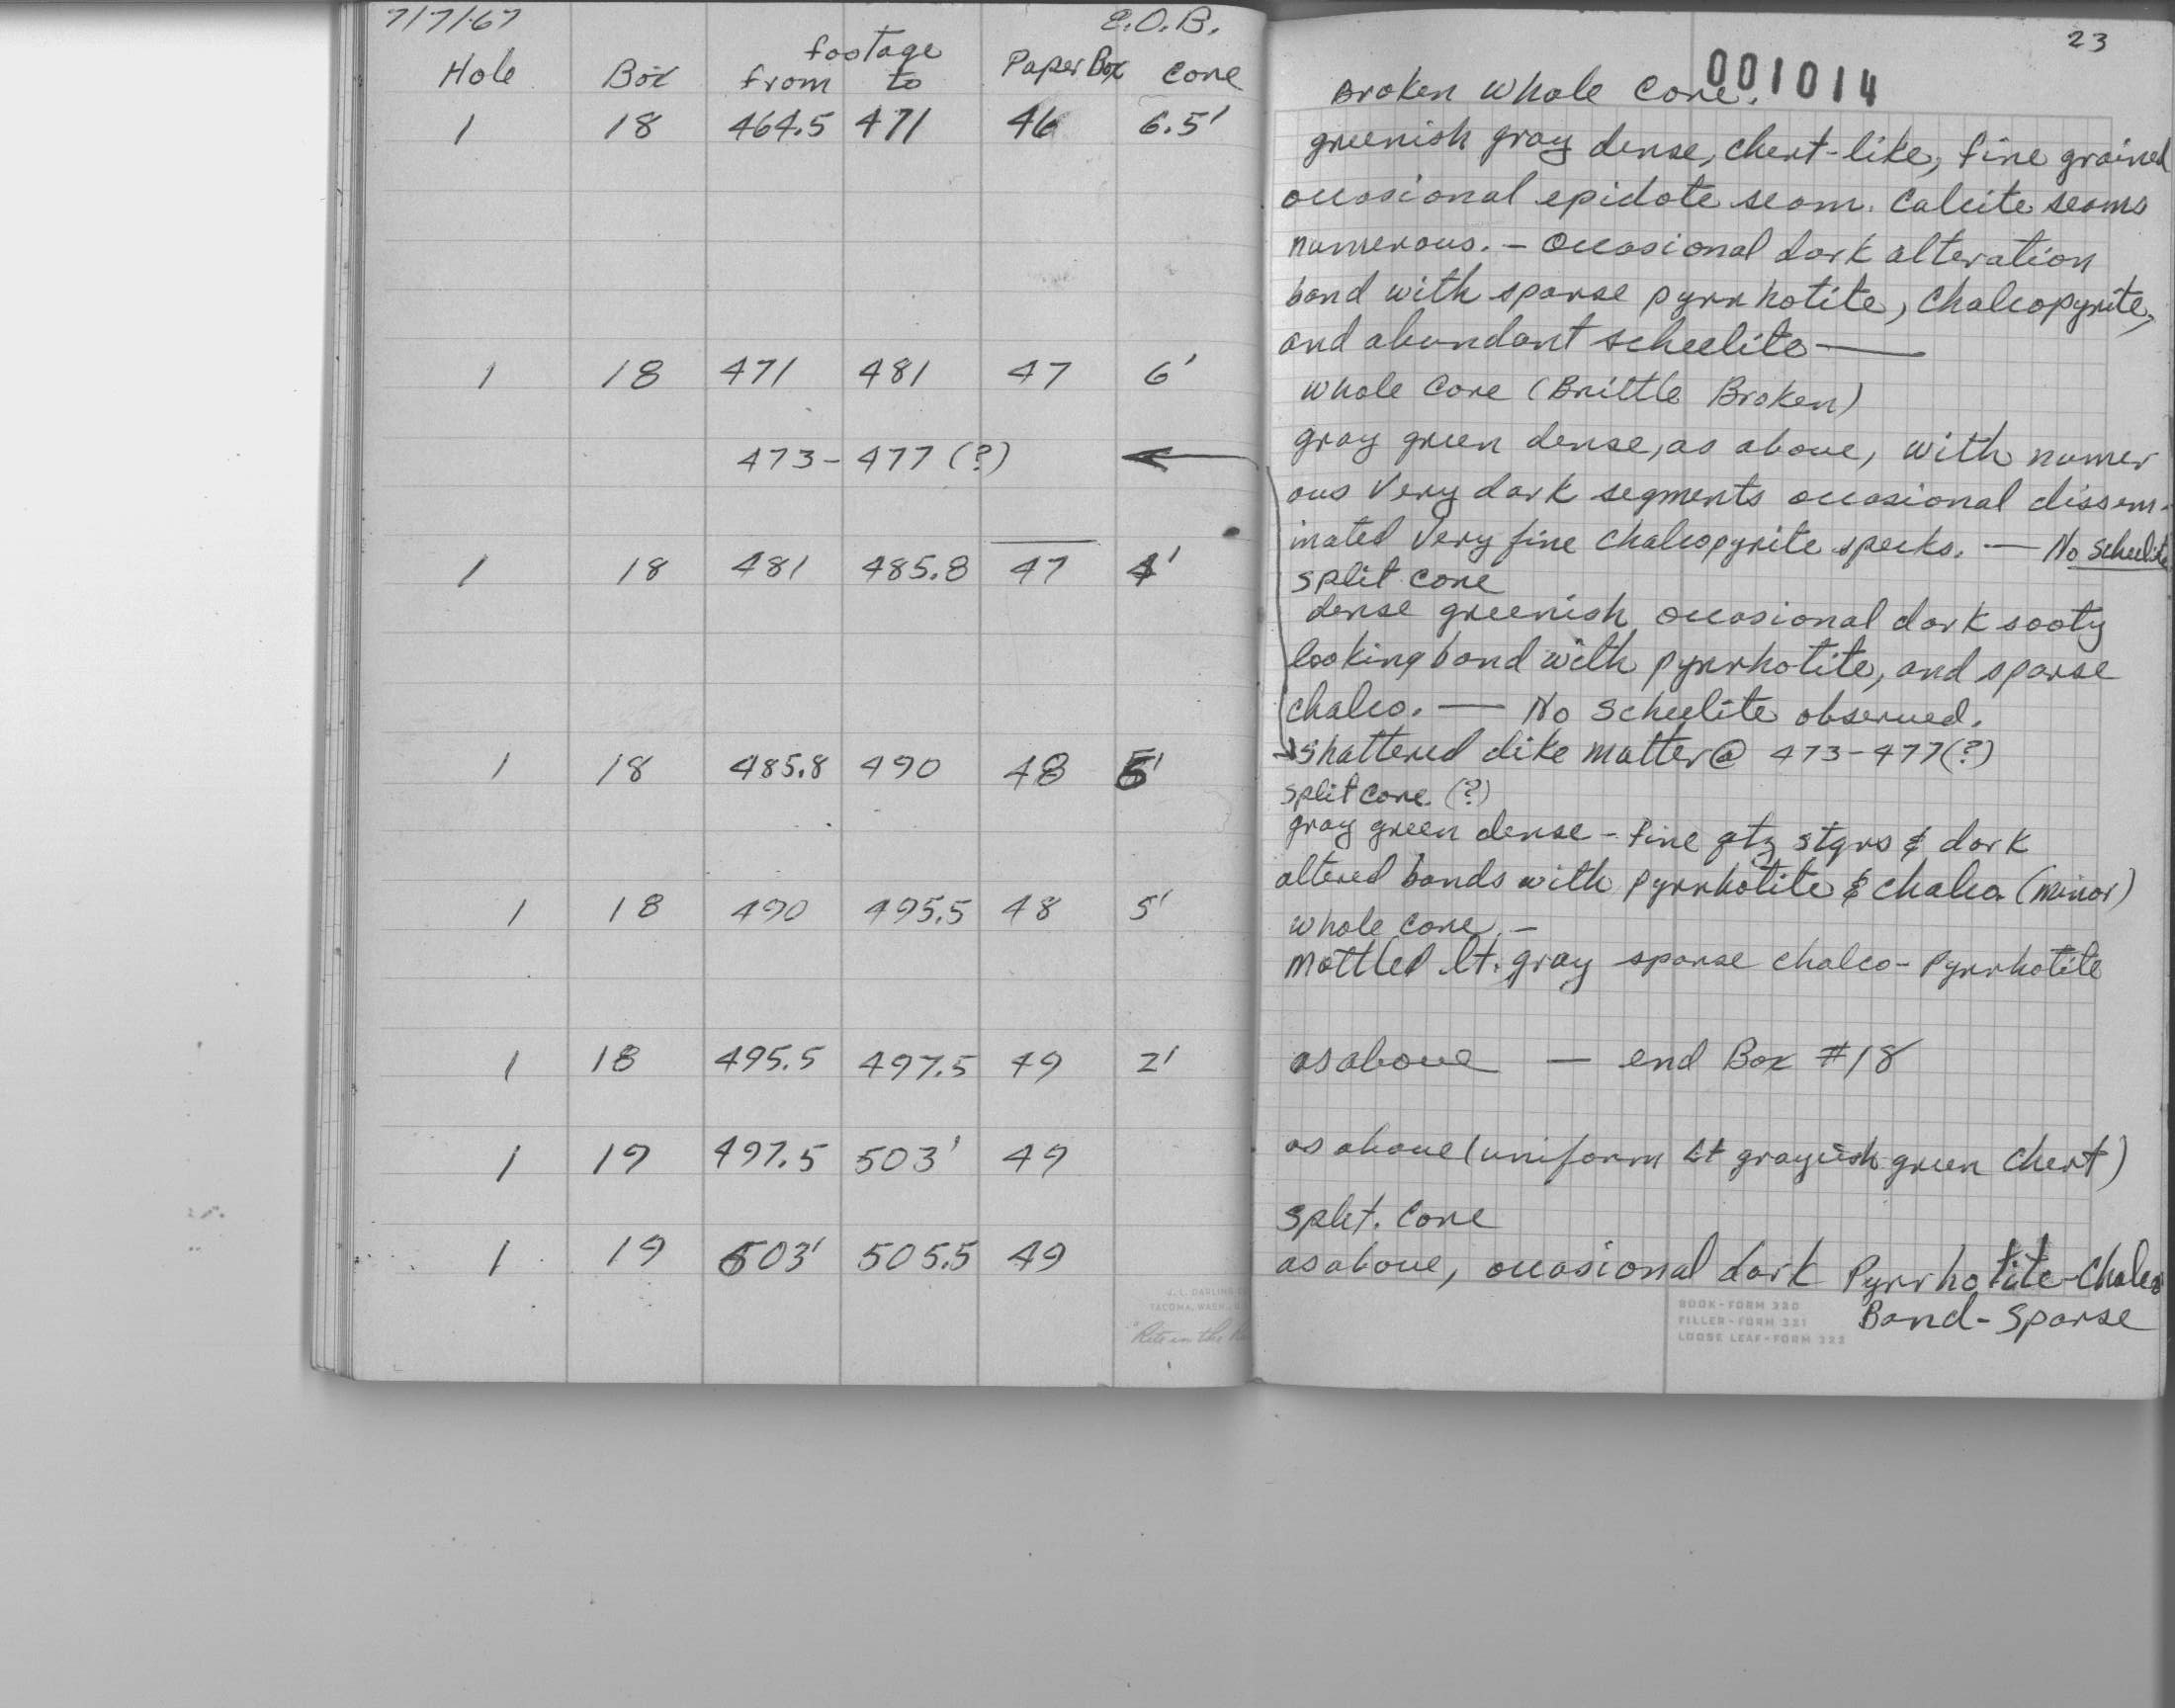 7/7/67 E.O.B.
footage
Hole Box from to Paper Box Core
1 18 464.5 471 46 6.5'
1 18 471 481 47 6'
473 - 477 (?)
1 18 481 485.8 47 4'
1 18 485.8 490 48 5'
1 18 490 495.5 48 5'
1 18 495.5 497.5 49 2'
1 19 497.5 503' 49
1 19 503' 505.5 49
J. L. DARLING
TACOMA, WASH.
"Rite in the
23
001014
Broken whole core.
greenish gray dense, chert-like, fine grained
occasional epidote seam. Calcite seams
numerous. - Occasional dark alteration
band with sparse pyrrhotite, chalcopyrite,
and abundant scheelite —
whole core (Brittle Broken)
gray green dense, as above, with numer
ous very dark segments occasional dissem-
inated very fine chalcopyrite specks. — No scheelite
split core
dense greenish occasional dark sooty
looking band with pyrrhotite, and sparse
chalco. — No Scheelite observed.
shattered dike matter @ 473-477(?)
split core. (?)
gray green dense - fine qtz stgrs & dark
altered bands with pyrrhotite & chalco (minor)
whole core. -
mottled lt. gray sparse chalco - Pyrrhotite
as above — end Box #18
as above (uniform lt grayish green chert)
split. core
as above, occasional dark Pyrrhotite-Chalco
Band - Sparse
BOOK-FORM 330
FILLER-FORM 331
LOOSE LEAF-FORM 333